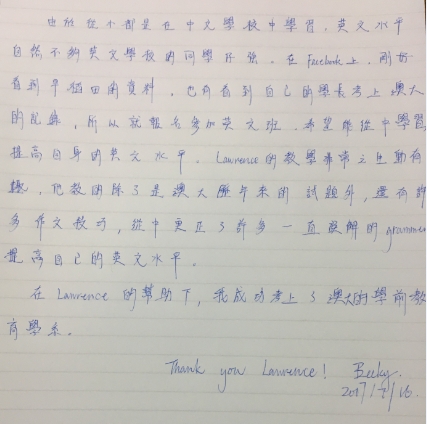 由於從小都是在中文學校中學習,英文水平
自然不夠英文學校的同學好強。在Facebook上,剛好
看到早稻田的資料,也有看到自己的學長考上澳大
的記錄,所以就報名參加英文班,希望能從中學習
提高自身的英文水平。Lawrence的教學非常之生動有
趣,他教的除了是澳大歷年來的試題外,還有許
多作文技巧,從中更正了許多一直誤解的grammer
提高自己的英文水平。
在Lawrence的幫助下,我成功考上了澳大的學前教
育學系。
Thank you Lawrence! Becky.
2017/7/16.